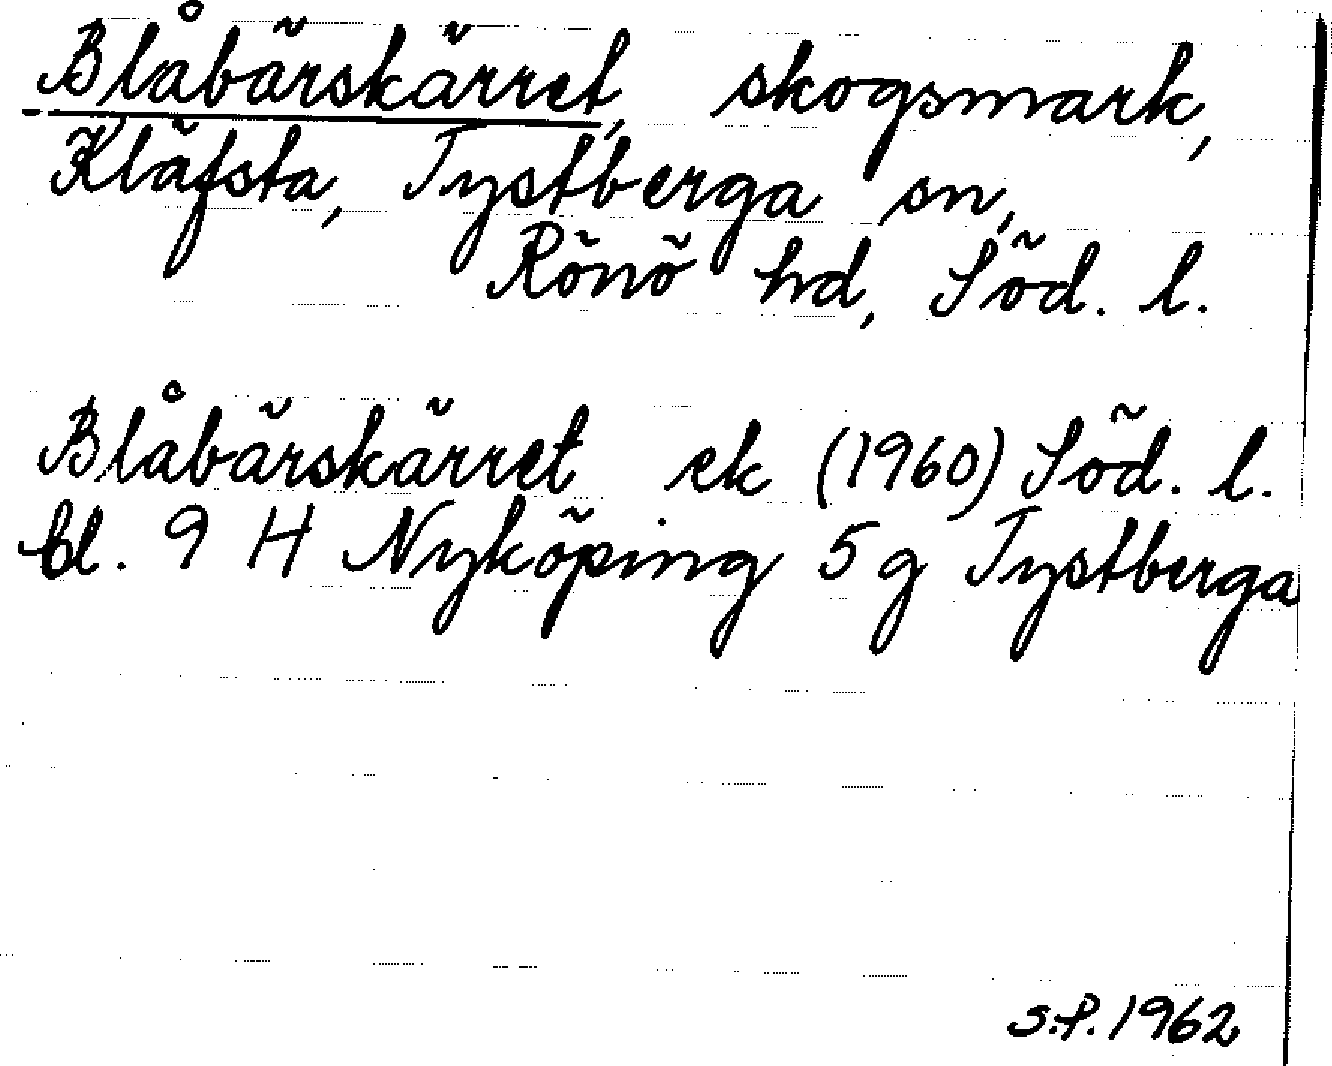 Blåbärskärret, skogsmark,
Kläfsta, Tystberga sn,
Rönö hd, Söd. l.
Blåbärskärret ek (1960) Söd. l.
bl. 9 H Nyköping 5 g Tystberga
S.P. 1962